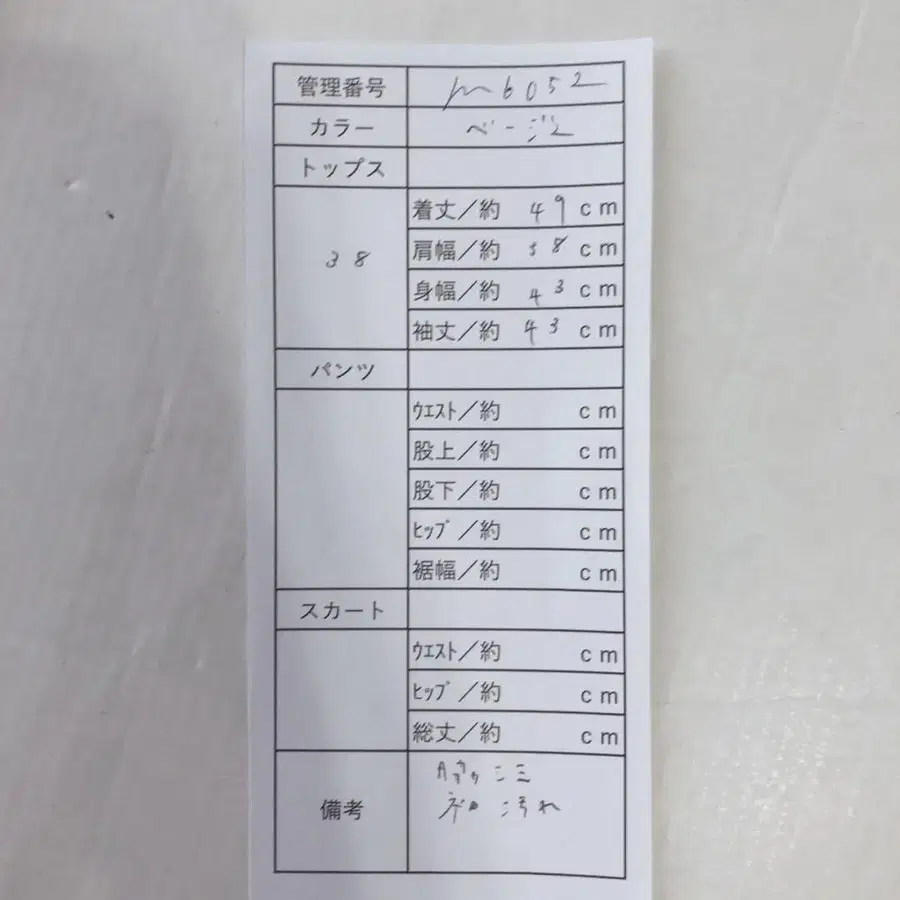 管理番号 m6052
カラー ベージュ
トップス
38
着丈/約 49 cm
肩幅/約 38 cm
身幅/約 43 cm
袖丈/約 43 cm
パンツ
ウエスト/約 cm
股上/約 cm
股下/約 cm
ヒップ/約 cm
裾幅/約 cm
スカート
ウエスト/約 cm
ヒップ/約 cm
総丈/約 cm
備考
脇 シミ
袖 汚れ